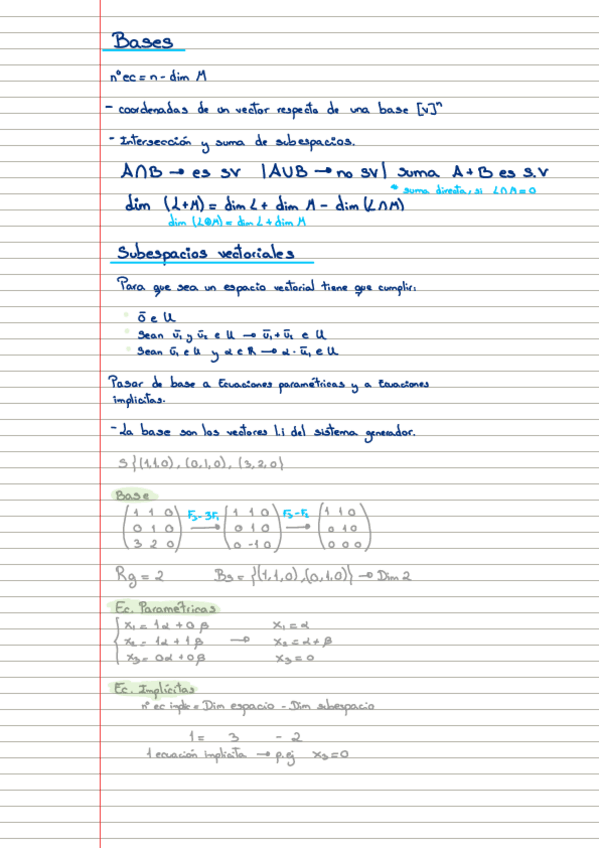 Bases
nº ec = n - dim M
- coordenadas de un vector respecto de una base [v]ⁿ
- Intersección y suma de subespacios.
A∩B → es sv | A∪B → no sv | suma A+B es s.v
* suma directa, si L∩M=0
dim (L+M) = dim L + dim M - dim (L∩M)
dim (L⊕M) = dim L + dim M
Subespacios vectoriales
Para que sea un espacio vectorial tiene que cumplir:
· ō ∈ U
· Sean ū₁ y ū₂ ∈ U → ū₁ + ū₂ ∈ U
· Sean ū₁ ∈ U y α ∈ R → α · ū₁ ∈ U
Pasar de base a Ecuaciones paramétricas y a Ecuaciones
implícitas.
- La base son los vectores l.i del sistema generador.
S{(1,1,0), (0,1,0), (3,2,0)}
Base
(1 1 0) F₃-3F₁ (1 1 0) F₃-F₂ (1 1 0)
(0 1 0) → (0 1 0) → (0 1 0)
(3 2 0) (0 -1 0) (0 0 0)
Rg = 2 Bs = {(1,1,0), (0,1,0)} → Dim 2
Ec. Paramétricas
x₁ = 1α + 0β x₁ = α
x₂ = 1α + 1β → x₂ = α + β
x₃ = 0α + 0β x₃ = 0
Ec. Implícitas
nº ec implic = Dim espacio - Dim subespacio
1 = 3 - 2
1 ecuación implícita → p.ej x₃ = 0